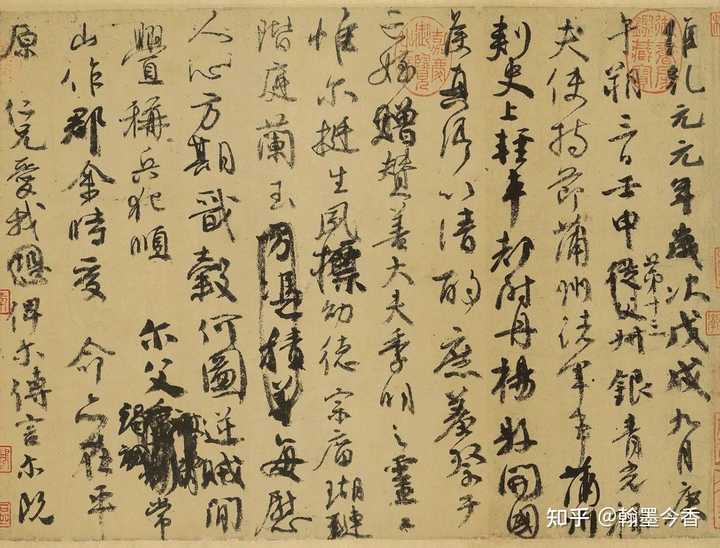 維乾元元年歲次戊戌九月庚
午朔三日壬申第十三從父銀青光祿
夫使持節蒲州諸軍事蒲州
刺史上輕車都尉丹楊縣開國
侯真卿以清酌庶羞祭于
亡姪贈贊善大夫季明之靈曰
惟尔挺生夙標幼德宗廟瑚璉
階庭蘭玉方憑積善每慰
人心方期戩穀何圖逆賊間
釁稱兵犯順尔父竭誠常
山作郡余時受命亦在平
原仁兄愛我恐俾尔傳言尔既
知乎 @翰墨今香